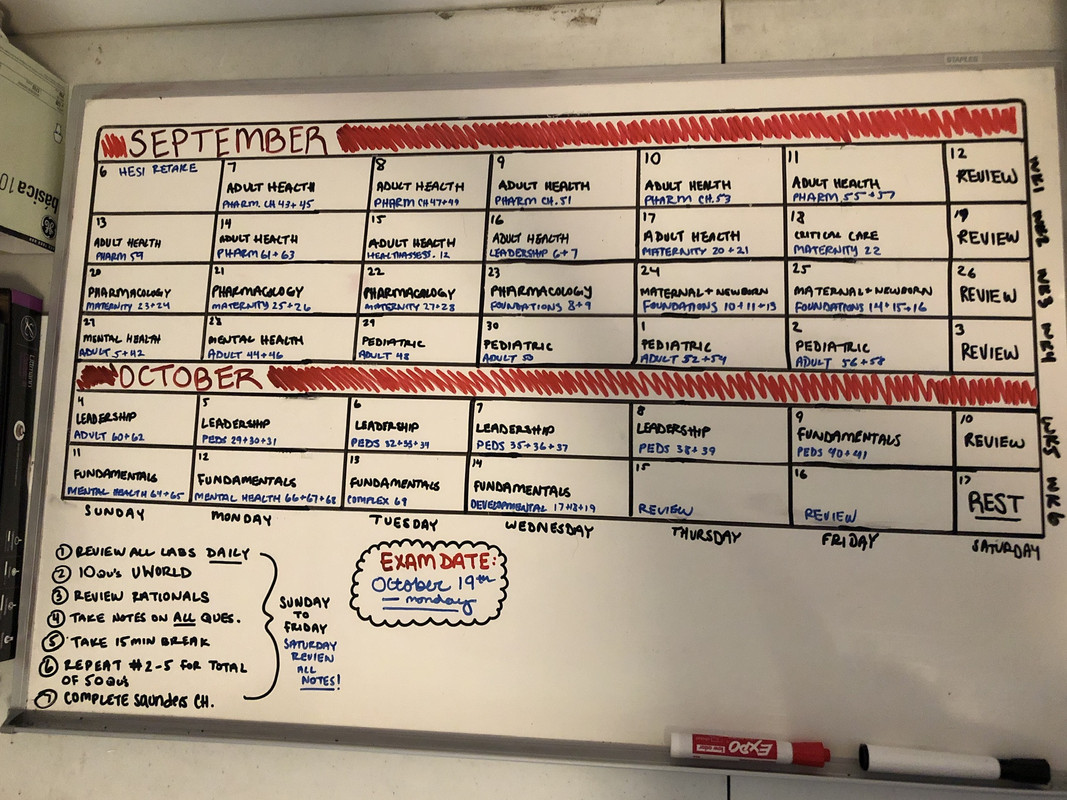 STAPLES
basica 10
GE
SEPTEMBER
6 HESI RETAKE
7
ADULT HEALTH
PHARM. CH 43+45
8
ADULT HEALTH
PHARM CH 47+49
9
ADULT HEALTH
PHARM CH. 51
10
ADULT HEALTH
PHARM CH. 53
11
ADULT HEALTH
PHARM 55+57
12
REVIEW
WK1
13
ADULT HEALTH
PHARM 59
14
ADULT HEALTH
PHARM 61+63
15
ADULT HEALTH
HEALTHASSESS. 12
16
ADULT HEALTH
LEADERSHIP 6+7
17
ADULT HEALTH
MATERNITY 20+21
18
CRITICAL CARE
MATERNITY 22
19
REVIEW
WK2
20
PHARMACOLOGY
MATERNITY 23+24
21
PHARMACOLOGY
MATERNITY 25+26
22
PHARMACOLOGY
MATERNITY 27+28
23
PHARMACOLOGY
FOUNDATIONS 8+9
24
MATERNAL+NEWBORN
FOUNDATIONS 10+11+13
25
MATERNAL+NEWBORN
FOUNDATIONS 14+15+16
26
REVIEW
WK3
27
MENTAL HEALTH
ADULT 5+42
28
MENTAL HEALTH
ADULT 44+46
29
PEDIATRIC
ADULT 48
30
PEDIATRIC
ADULT 50
1
PEDIATRIC
ADULT 52+54
2
PEDIATRIC
ADULT 56+58
3
REVIEW
WK4
OCTOBER
4
LEADERSHIP
ADULT 60+62
5
LEADERSHIP
PEDS 29+30+31
6
LEADERSHIP
PEDS 32+33+34
7
LEADERSHIP
PEDS 35+36+37
8
LEADERSHIP
PEDS 38+39
9
FUNDAMENTALS
PEDS 40+41
10
REVIEW
WK5
11
FUNDAMENTALS
MENTAL HEALTH 64+65
12
FUNDAMENTALS
MENTAL HEALTH 66+67+68
13
FUNDAMENTALS
COMPLEX 69
14
FUNDAMENTALS
DEVELOPMENTAL 17+18+19
15
REVIEW
16
REVIEW
17
REST
WK6
SUNDAY
MONDAY
TUESDAY
WEDNESDAY
THURSDAY
FRIDAY
SATURDAY
① REVIEW ALL LABS DAILY
② 10 QU's UWORLD
③ REVIEW RATIONALS
④ TAKE NOTES ON ALL QUES.
⑤ TAKE 15 MIN BREAK
⑥ REPEAT #2-5 FOR TOTAL
OF 50 QU's
⑦ COMPLETE Saunders CH.
SUNDAY
TO
FRIDAY
SATURDAY
REVIEW
ALL
NOTES!
EXAM DATE:
October 19th
— monday
EXPO